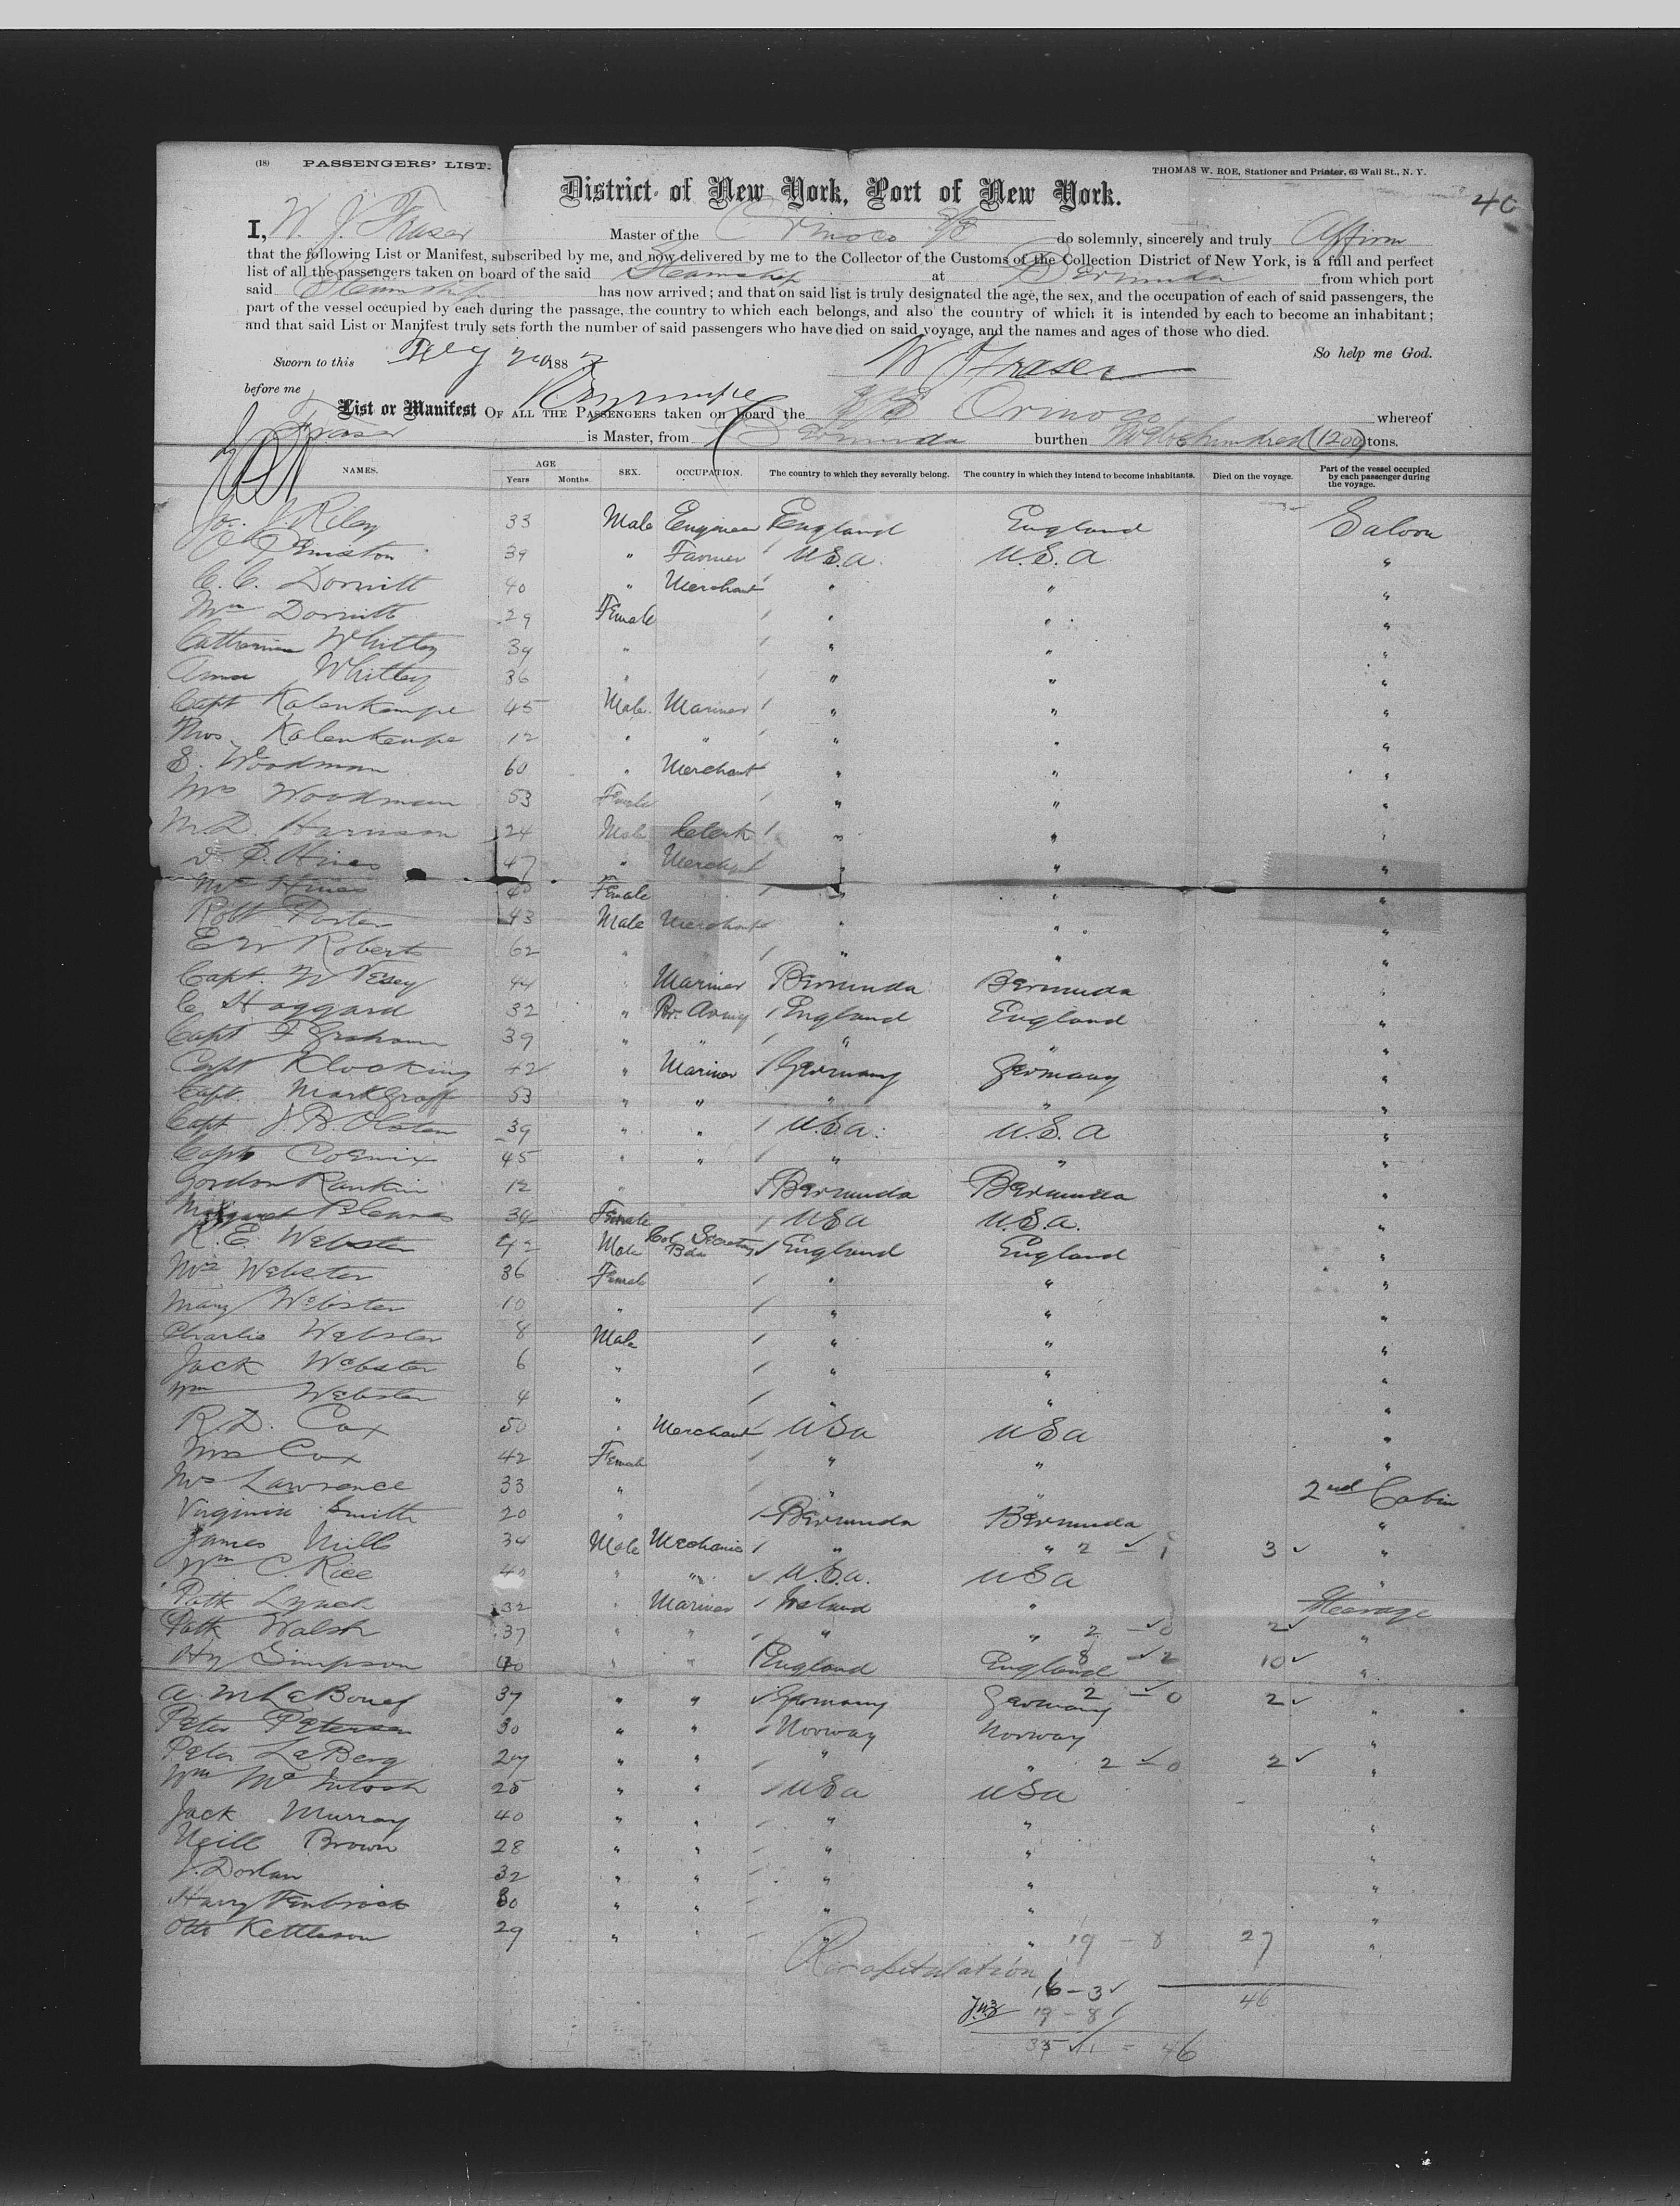 (18) PASSENGERS' LIST.
THOMAS W. ROE, Stationer and Printer, 63 Wall St., N. Y.
District of New York, Port of New York.
I, W. J. Fraser Master of the Orinoco do solemnly, sincerely and truly Affirm
that the following List or Manifest, subscribed by me, and now delivered by me to the Collector of the Customs of the Collection District of New York, is a full and perfect
list of all the passengers taken on board of the said Steamship at Bermuda from which port
said Steamship has now arrived; and that on said list is truly designated the age, the sex, and the occupation of each of said passengers, the
part of the vessel occupied by each during the passage, the country to which each belongs, and also the country of which it is intended by each to become an inhabitant;
and that said List or Manifest truly sets forth the number of said passengers who have died on said voyage, and the names and ages of those who died.
Sworn to this 188 W J Fraser So help me God.
before me
List or Manifest OF ALL THE PASSENGERS taken on board the whereof
Fraser is Master, from Bermuda burthen (1200) tons.
NAMES. AGE Years Months. SEX. OCCUPATION. The country to which they severally belong. The country in which they intend to become inhabitants. Died on the voyage. Part of the vessel occupied by each passenger during the voyage.
J. Riley 33 Male Engineer England England Saloon
39 " Farmer U.S.a. U.S.a "
C. C. Dorwitt 40 " Merchant " " "
Mrs Dorwitt 29 Female " " "
Catherine Whitley 39 " " " "
Anna Whitley 36 " " " "
Capt Kalenkempe 45 Male Mariner " " "
Kalenkempe 12 " " " " "
S. Woodman 60 " Merchant " " "
Mrs Woodman 53 Female " " "
M.D. Harrison 24 Male Clerk " " "
Hines 47 " Merchant " " "
Mrs Hines 40 Female " " "
Robt Porter 43 Male Merchant " " "
E W Roberts 62 " " " " "
Capt. W Vesey 44 " Mariner Bermuda Bermuda "
C Haggard 32 " Br. Army England England "
Capt F Graham 39 " " " " "
Capt Klocking 42 " Mariner Germany Germany "
Capt. Markgraff 53 " " " " "
Capt J. B. Olsten 39 " " U.S.a. U.S.A "
Capt Coenix 45 " " " " "
Gordon Rankin 12 " Bermuda Bermuda "
Margaret 34 Female USa U.S.a. "
R. E. Webster 42 Male Col Secretary Bda England England "
Mrs Webster 36 Female " " "
Mary Webster 10 " " " "
Charlie Webster 8 Male " " "
Jack Webster 6 " " " "
Wm Webster 4 " " " "
R.D. Cox 50 " Merchant USa USa "
Mrs Cox 42 Female " " "
Mrs Lawrence 33 " " " 2nd Cabin
Virginia Smith 20 " Bermuda Bermuda "
James Mills 34 Male Mechanic " " 2 - 1 3 "
Wm. C. Rice 40 " " U.S.a. USa "
Patk Lynch 32 " Mariner Ireland " Steerage
Patk Walsh 37 " " " " 2 - 0 2 "
Hy Simpson 40 " " England England 8 - 2 10 "
A. M LeBouef 37 " " Germany Germany 2 - 0 2 "
Peter Petersen 30 " " Norway Norway "
Peter LeBerg 27 " " " " 2 - 0 2 "
Wm McIntosh 25 " " USa USa "
Jack Murray 40 " " " " "
Neill Brown 28 " " " " "
J. Dorlan 32 " " " " "
Harry 30 " " " " "
Otto Kettleson 29 " " " " 19 - 8 27 "
Recapitulation
16 - 3 46
19 - 8
35 11 = 46